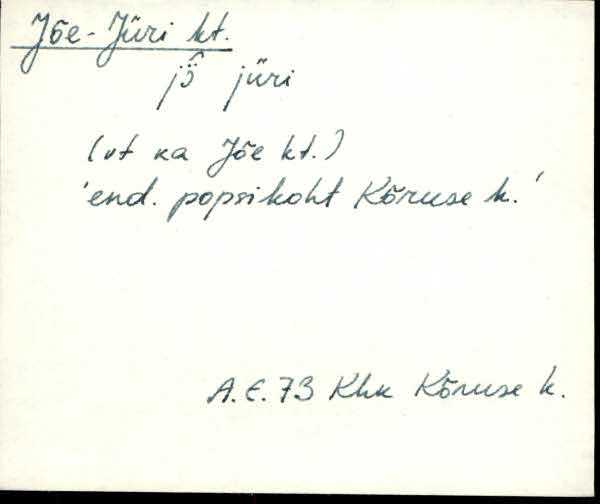 Jõe-Jüri kt.
jȭ̈ jüri
(vt ka Jõe kt.)
'end. popsikoht Kõruse k.'
A.E.73 Khk Kõruse k.